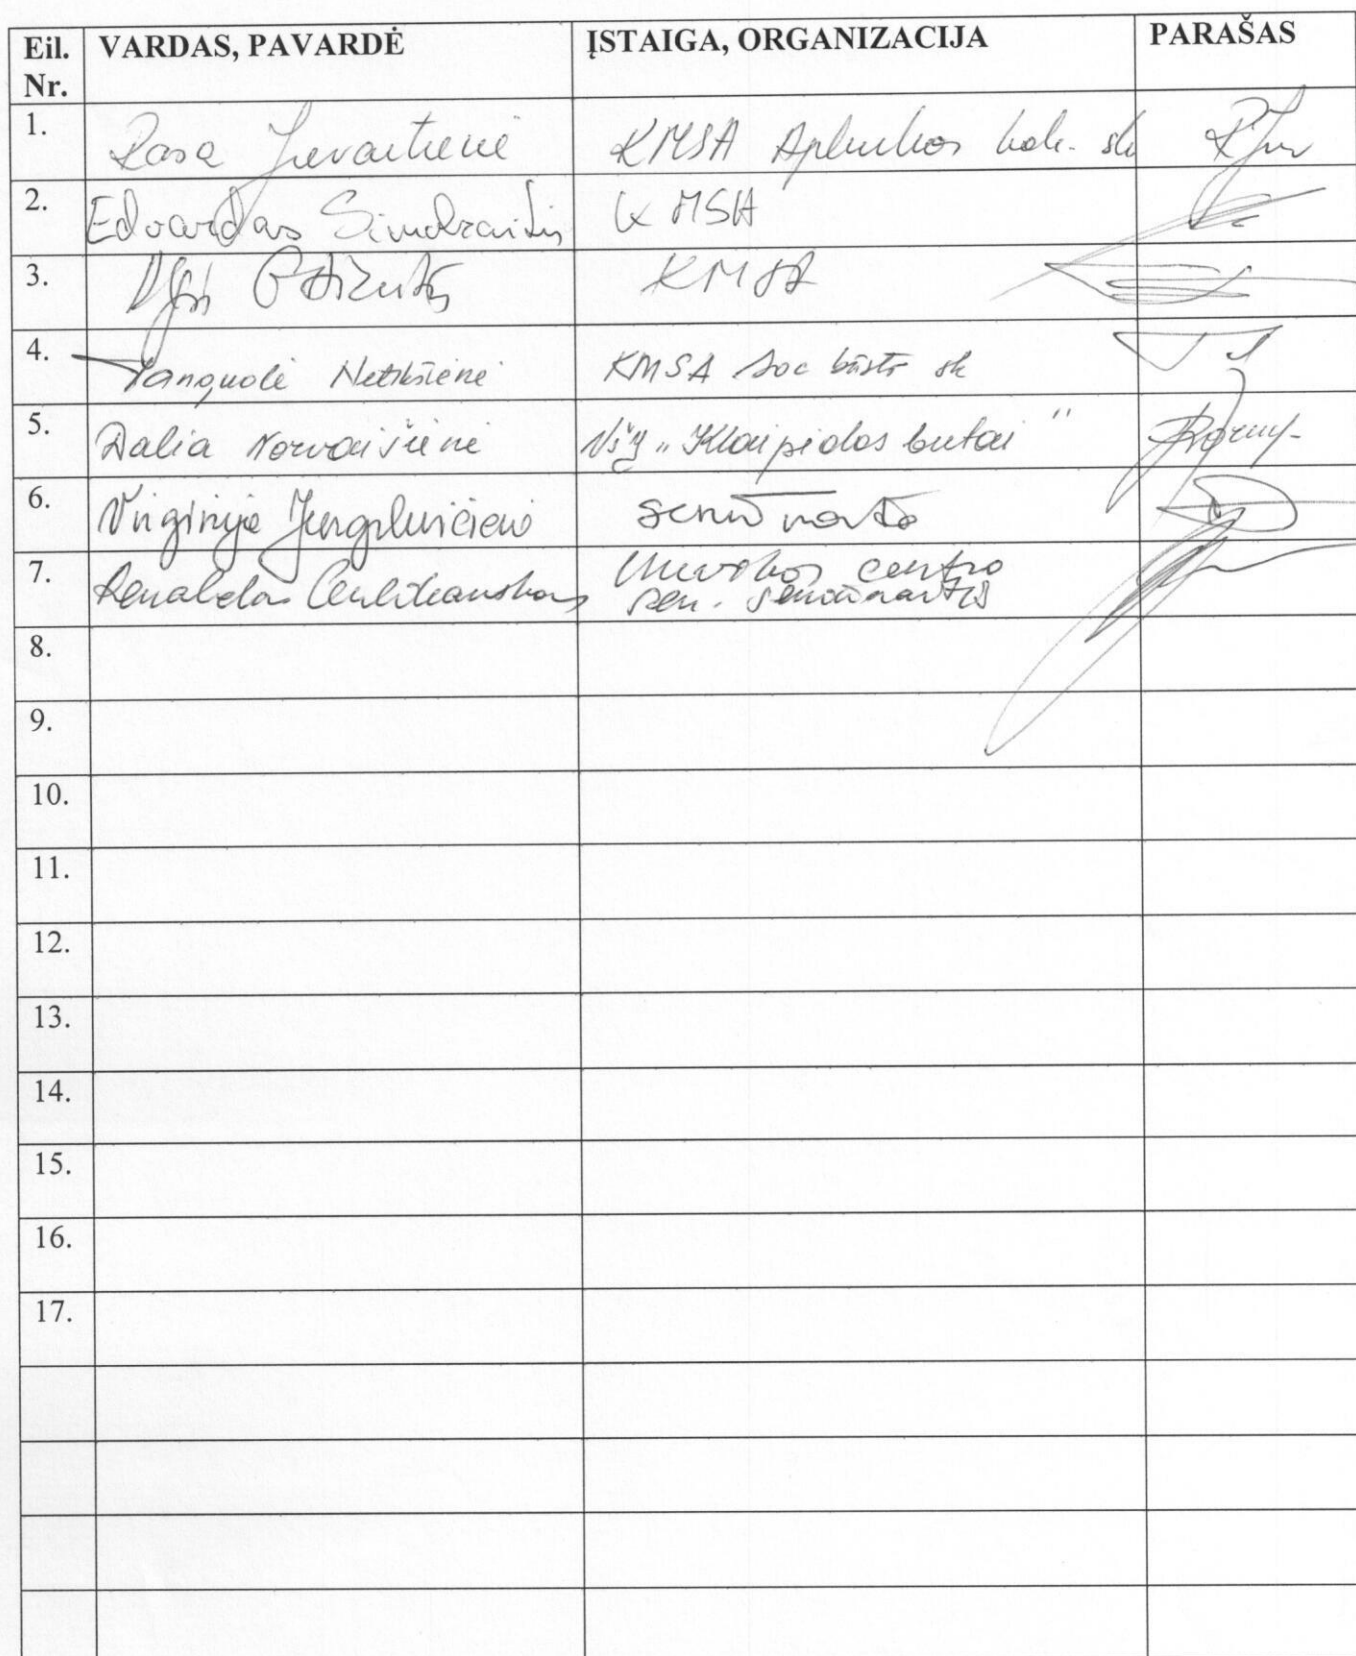 Eil. Nr. VARDAS, PAVARDĖ ĮSTAIGA, ORGANIZACIJA PARAŠAS
1. Rasa Jievaitienė KMSA Aplinkos kok. sk
2. Edvardas Simokaitis KMSA
3. KMSA
4. Danguolė Netikšienė KMSA soc būsto sk
5. Dalia Norvaišienė VšĮ „Klaipėdos butai"
6. Virginija Jurgilevičienė seniūnaitė
7. centro
sen. seniūnaitis
8.
9.
10.
11.
12.
13.
14.
15.
16.
17.